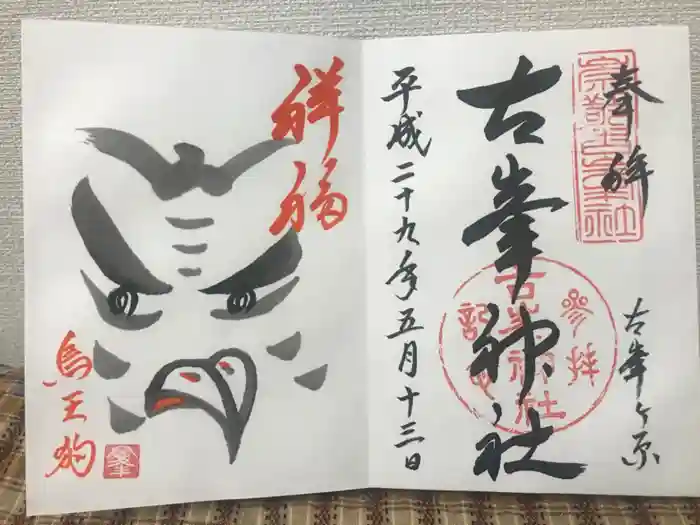 奉拝
古峯ヶ原
古峯神社
平成二十九年五月十三日
参拝
古峯神社
記念
祥福
烏天狗